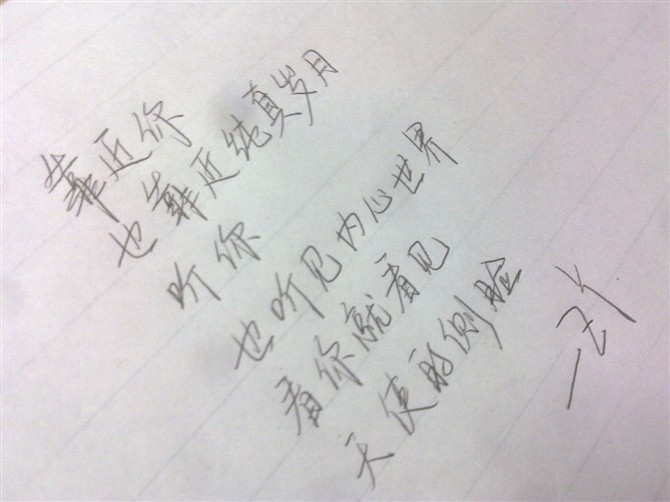 靠近你
也靠近纯真岁月
听你
也听见内心世界
看你就看见
天使的侧脸